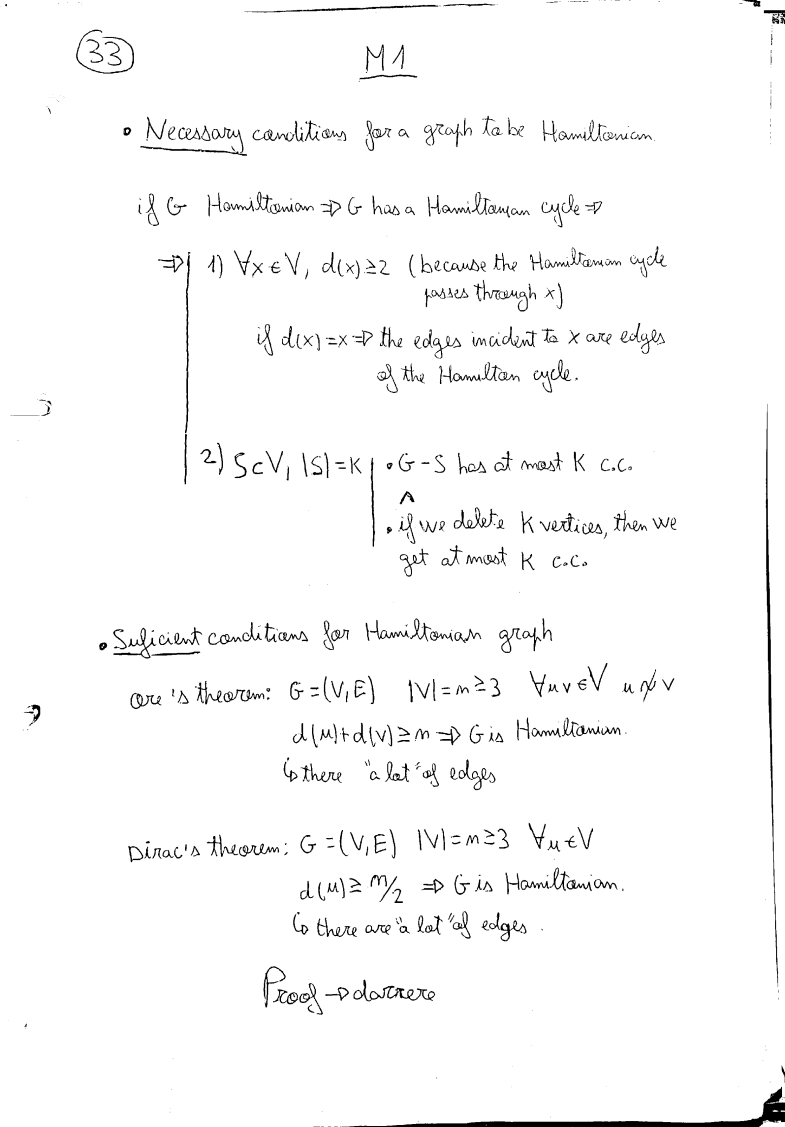 33
M1
• Necessary conditions for a graph to be Hamiltonian
if G Hamiltonian ⇒ G has a Hamiltonian cycle ⇒
⇒ 1) ∀x ∈ V, d(x) ≥ 2 (because the Hamiltonian cycle
passes through x)
if d(x) = x ⇒ the edges incident to x are edges
of the Hamilton cycle.
2) S ⊂ V, |S| = K • G - S has at most K c.c.
∧
• if we delete K vertices, then we
get at most K c.c.
• Suficient conditions for Hamiltonian graph
Ore's theorem: G = (V, E) |V| = n ≥ 3 ∀u v ∈ V u ≁ v
d(u) + d(v) ≥ n ⇒ G is Hamiltonian.
↳ there "a lot" of edges
Dirac's theorem: G = (V, E) |V| = n ≥ 3 ∀u ∈ V
d(u) ≥ n/2 ⇒ G is Hamiltonian.
↳ there are "a lot" of edges.
Proof → darrere